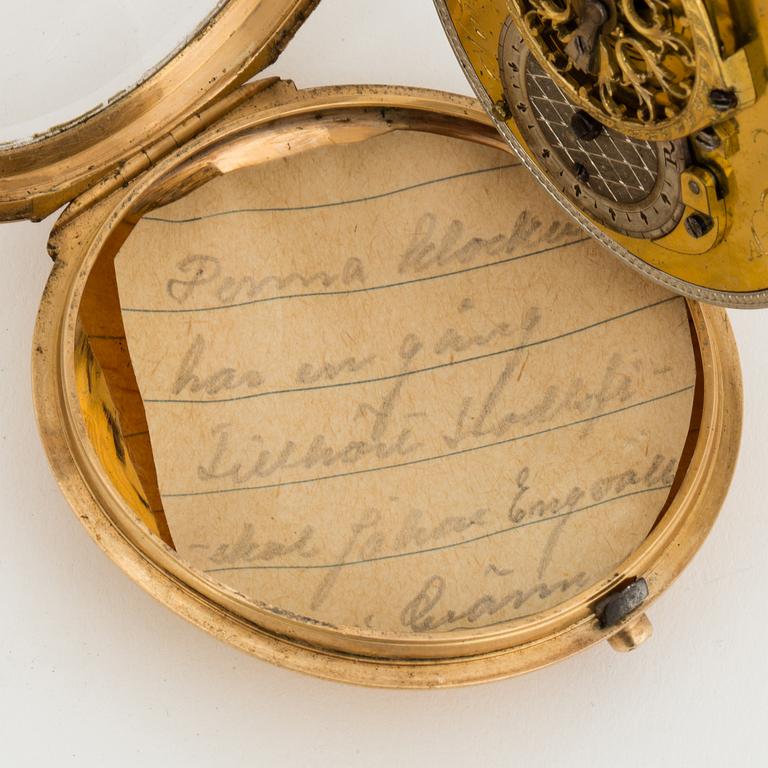 Denna klocka
har en gång
Tillhört Stadsfi-
-skal Johan Engvall
i Gränn